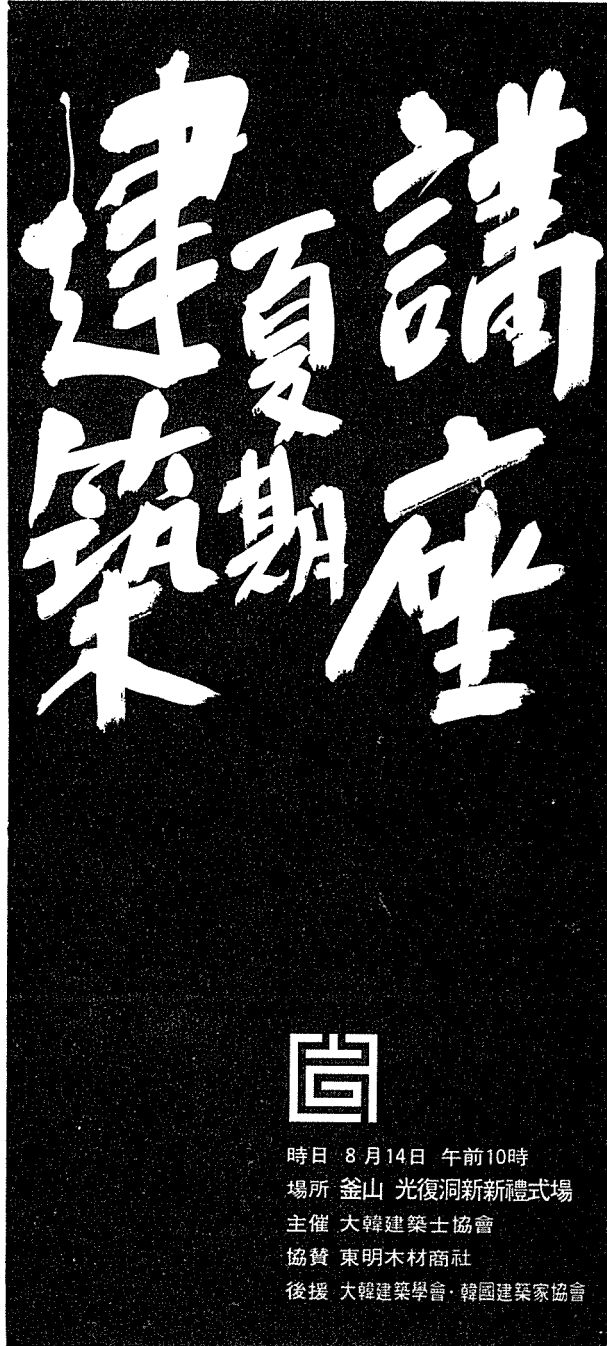 建築
夏期
講座
時日 8月14日 午前10時
場所 釜山 光復洞新新禮式場
主催 大韓建築士協會
協賛 東明木材商社
後援 大韓建築學會·韓國建築家協會